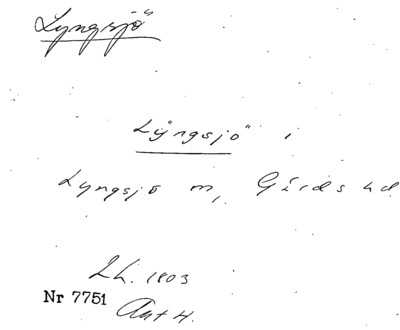 Lyngsjö
Lÿngsjö i
Lyngsjö m, Gärds hd
Lh. 1803
Nr 7751
Akt 4.